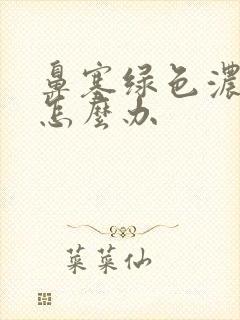 鼻塞绿色浓
怎麽办
菜菜仙